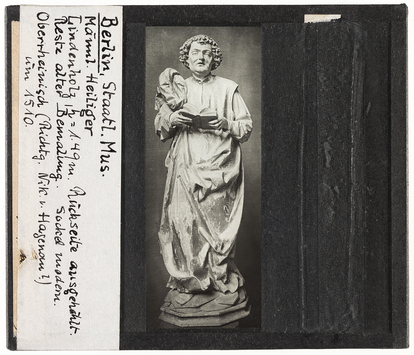 Berlin, Staatl. Mus.
Männl. Heiliger
Lindenholz, h = 1.49 m Rückseite ausgehöhlt.
Reste alter Bemalung. Sockel modern.
Oberrheinisch (Richtg. Nik. v. Hagenau?)
um 1510.